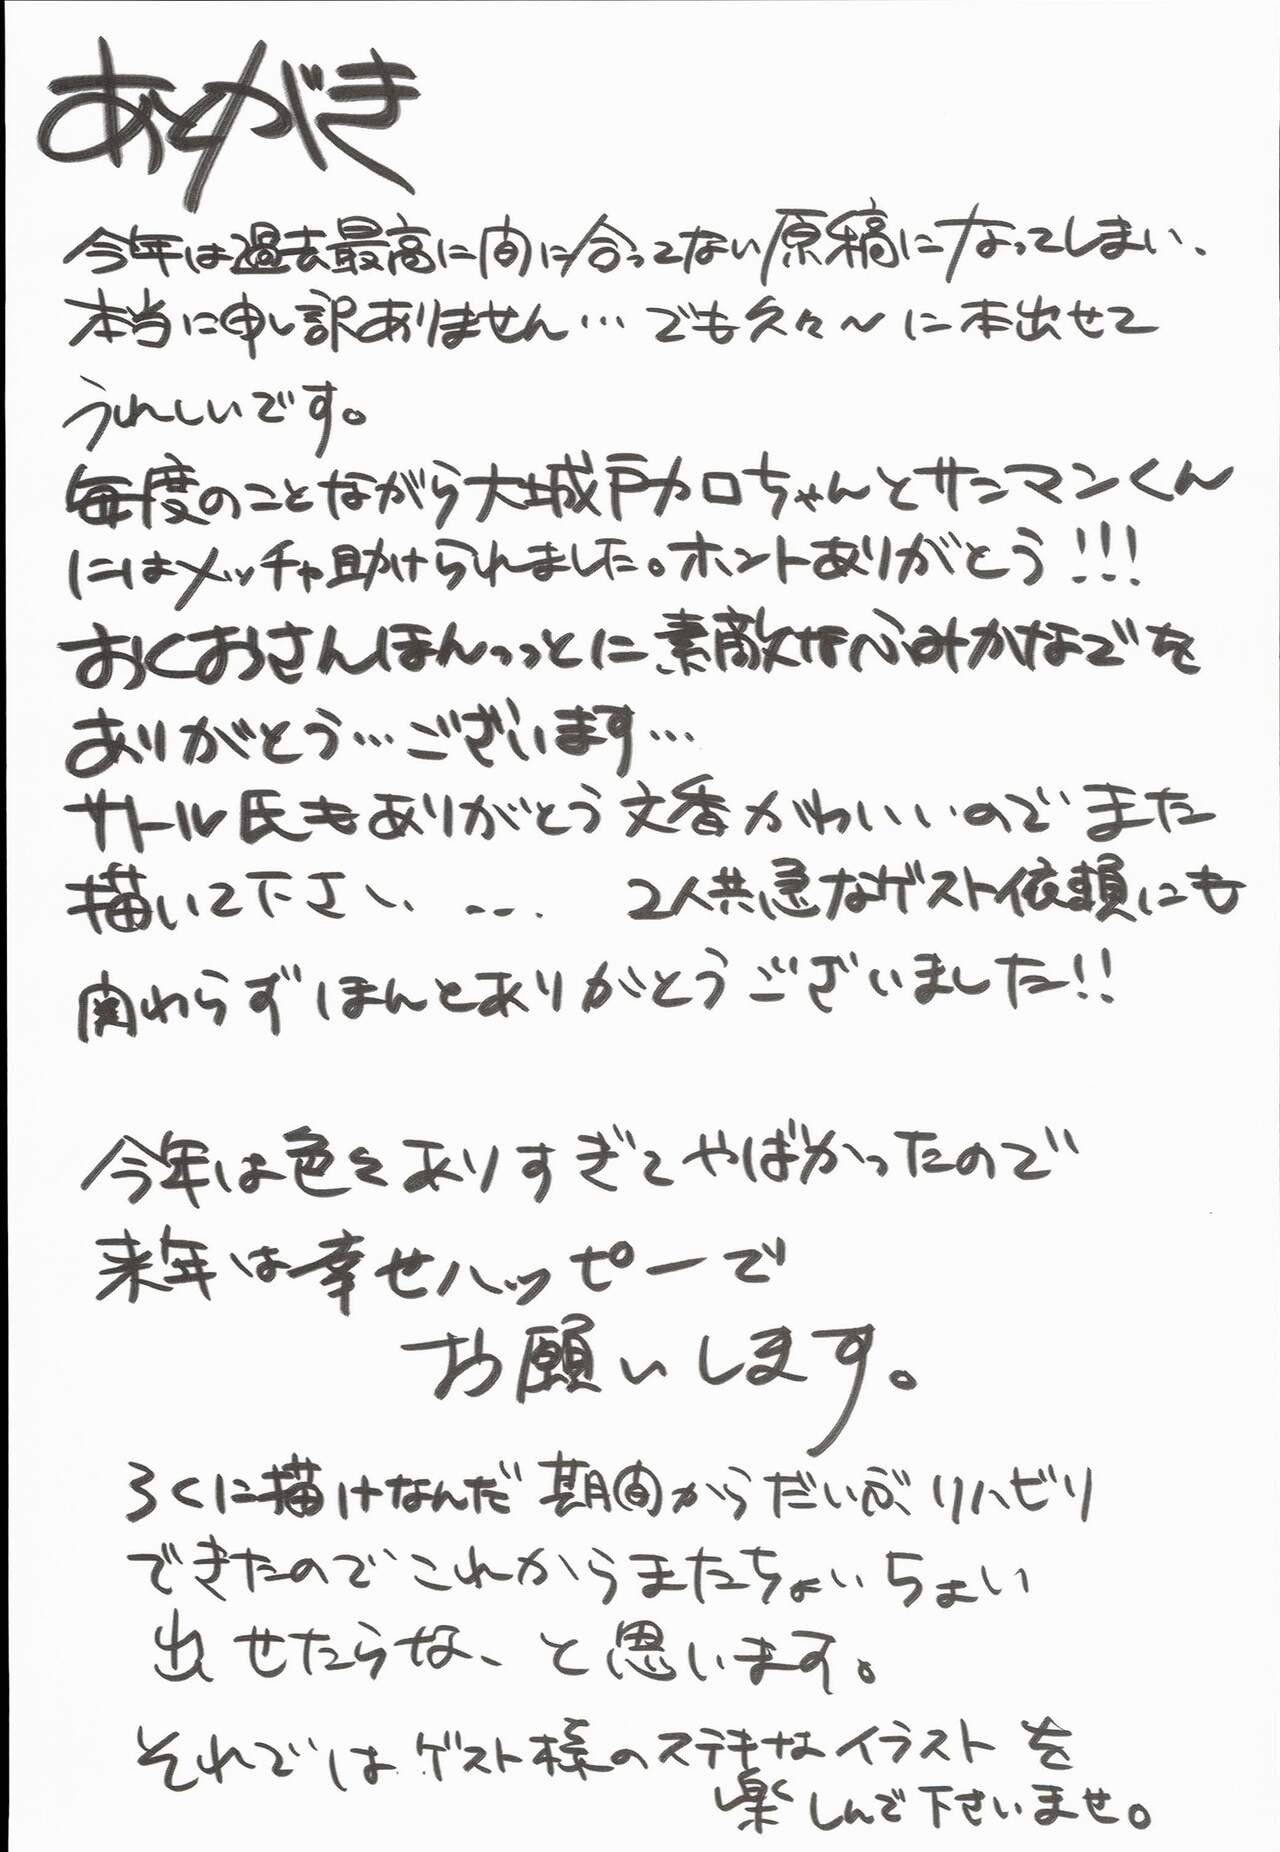 あとがき
今年は過去最高に間に合ってない原稿になってしまい、
本当に申し訳ありません…でも久々〜に本出せて
うれしいです。
毎度のことながら大城戸カロちゃんとサンマンくん
にはメッチャ助けられました。ホントありがとう!!!
おくおさんほんっっとに素敵なふみかなでを
ありがとう…ございます…
サトル氏もありがとう文香かわいいのでまた
描いて下さい、… 2人共急なゲスト依頼にも
関わらずほんとありがとうございました!!
今年は色々ありすぎてやばかったので
来年は幸せハッピーで
お願いします。
ろくに描けなんだ期間からだいぶリハビリ
できたのでこれからまたちょいちょい
出せたらな、と思います。
それではゲスト様のステキなイラストを
楽しんで下さいませ。